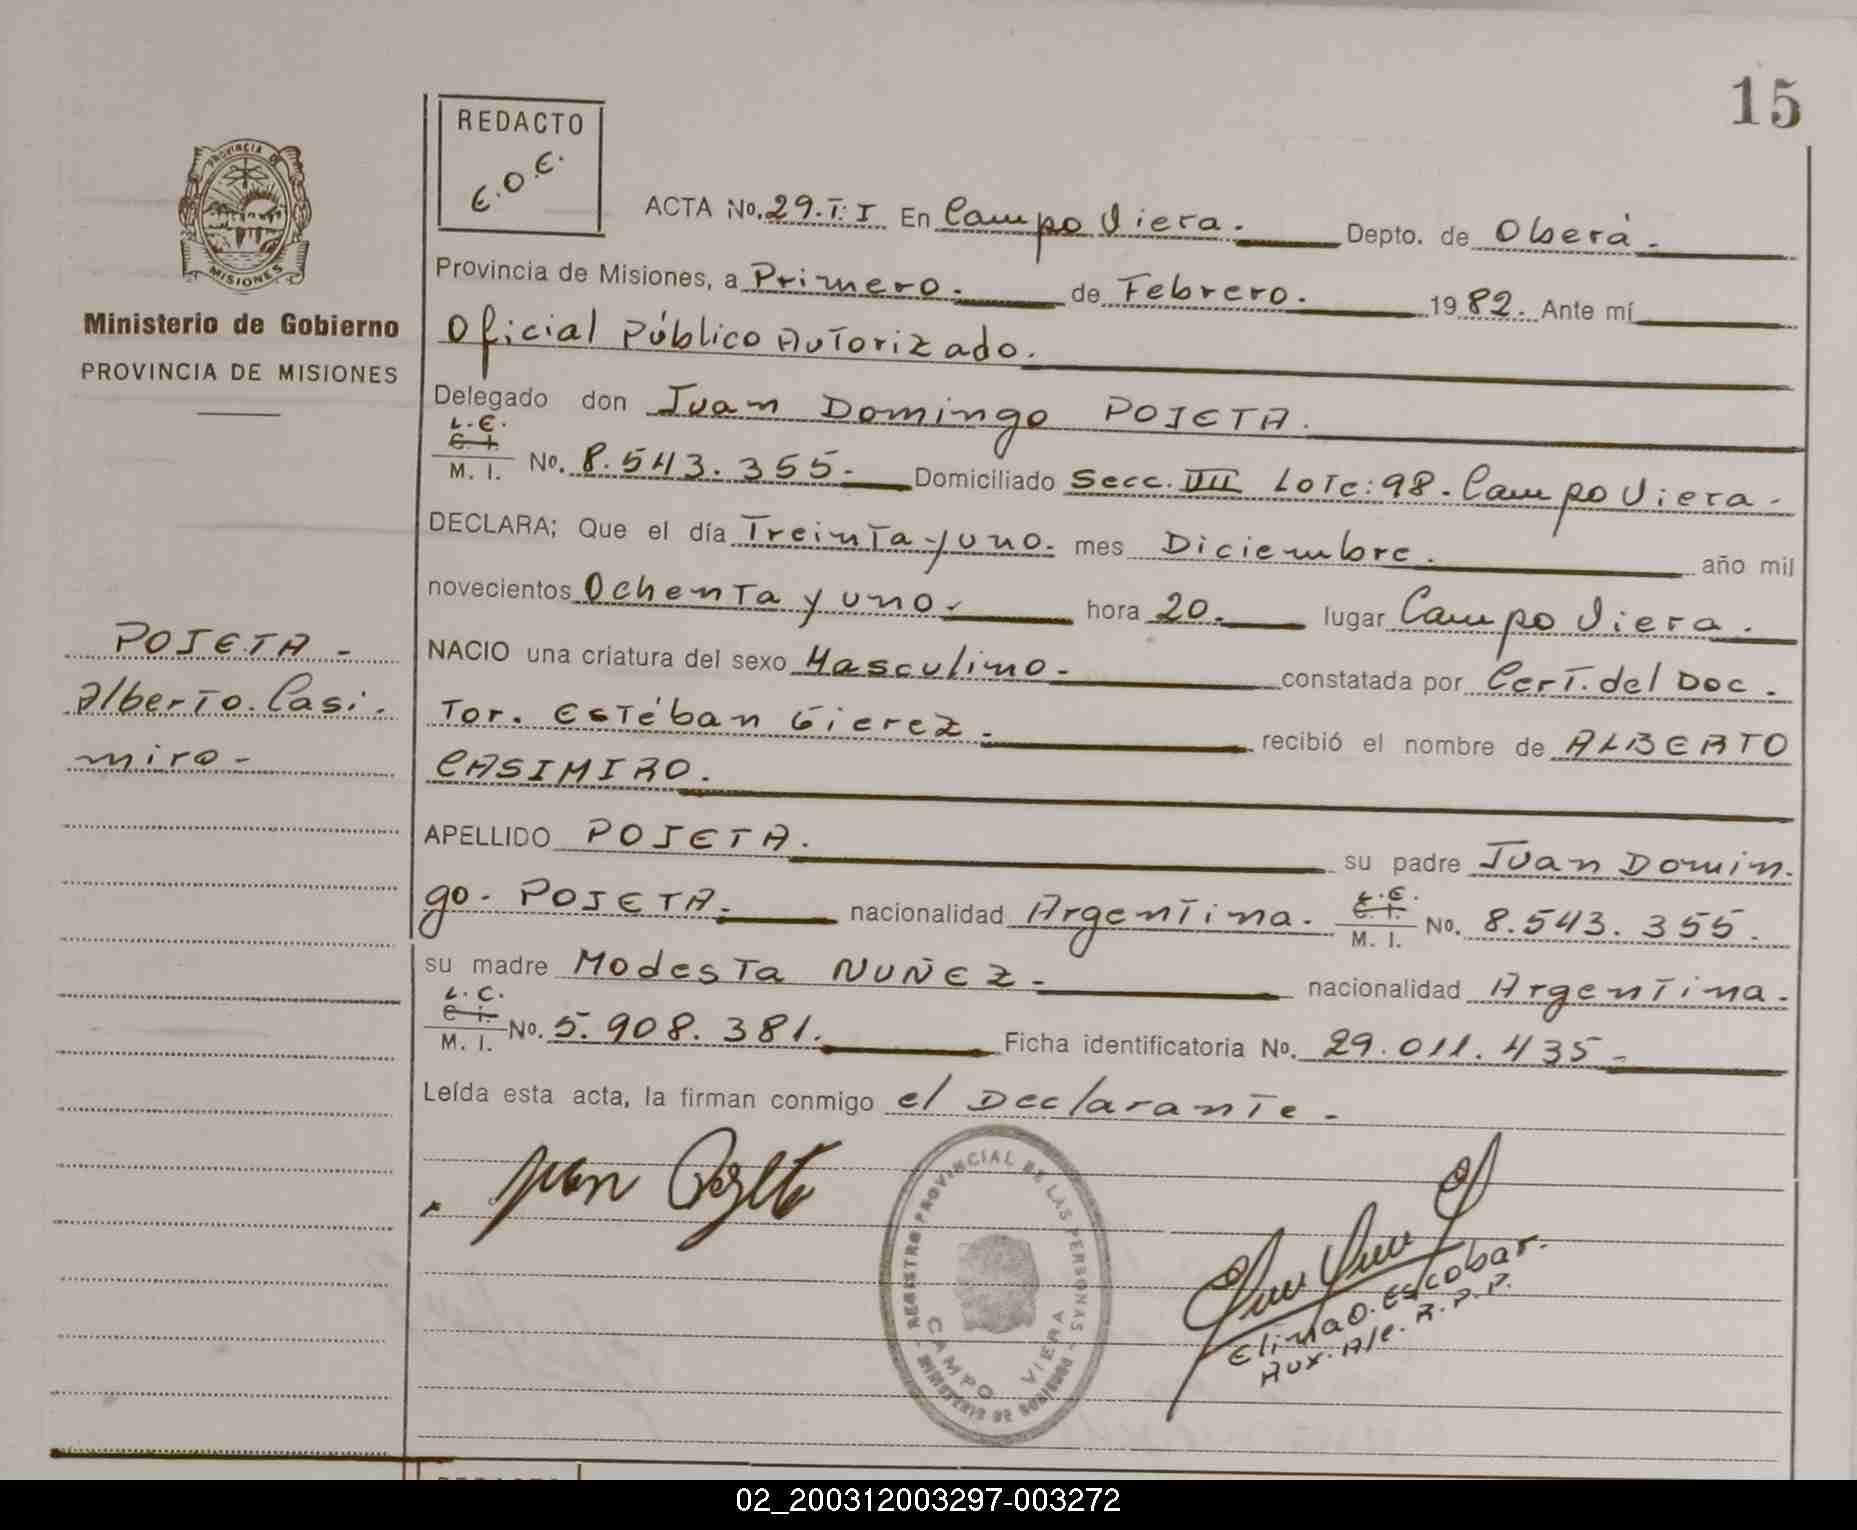 15
REDACTO
E.O.E.
PROVINCIA DE
MISIONES
Ministerio de Gobierno
PROVINCIA DE MISIONES
POJETA -
Alberto. Casi.
miro -
ACTA No. 29. T: I En Campo Viera. Depto. de Oberá.
Provincia de Misiones, a Primero. de Febrero. 1982. Ante mí
Oficial Público Autorizado.
Delegado don Juan Domingo POJETA.
L.E.
C. I.
M. I. No. 8.543.355. Domiciliado Secc. VIII Lote: 98. Campo Viera.
DECLARA; Que el día Treinta y uno. mes Diciembre. año mil
novecientos Ochenta y uno. hora 20. lugar Campo Viera.
NACIO una criatura del sexo Masculino. constatada por Cert. del Doc.
Tor. Estéban Gierez. recibió el nombre de ALBERTO
CASIMIRO.
APELLIDO POJETA. su padre Juan Domin.
go. POJETA. nacionalidad Argentina. L.E. C. I. M. I. No. 8.543.355.
su madre Modesta NUÑEZ. nacionalidad Argentina.
L.C.
C. I.
M. I. No. 5.908.381. Ficha identificatoria No. 29.011.435.
Leída esta acta, la firman conmigo el Declarante.
Juan
REGISTRO PROVINCIAL DE LAS PERSONAS
CAMPO VIERA
MINISTERIO DE GOBIERNO
Elina O. Escobar.
Aux. A/c. R.P.P.
REDACTO
02_200312003297-003272